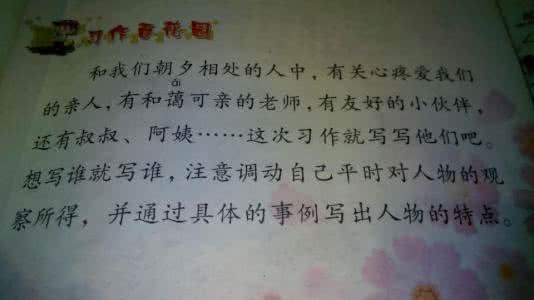 习作百花园
和我们朝夕相处的人中，有关心疼爱我们
ǎi
的亲人，有和蔼可亲的老师，有友好的小伙伴，
还有叔叔、阿姨……这次习作就写写他们吧。
想写谁就写谁，注意调动自己平时对人物的观
察所得，并通过具体的事例写出人物的特点。